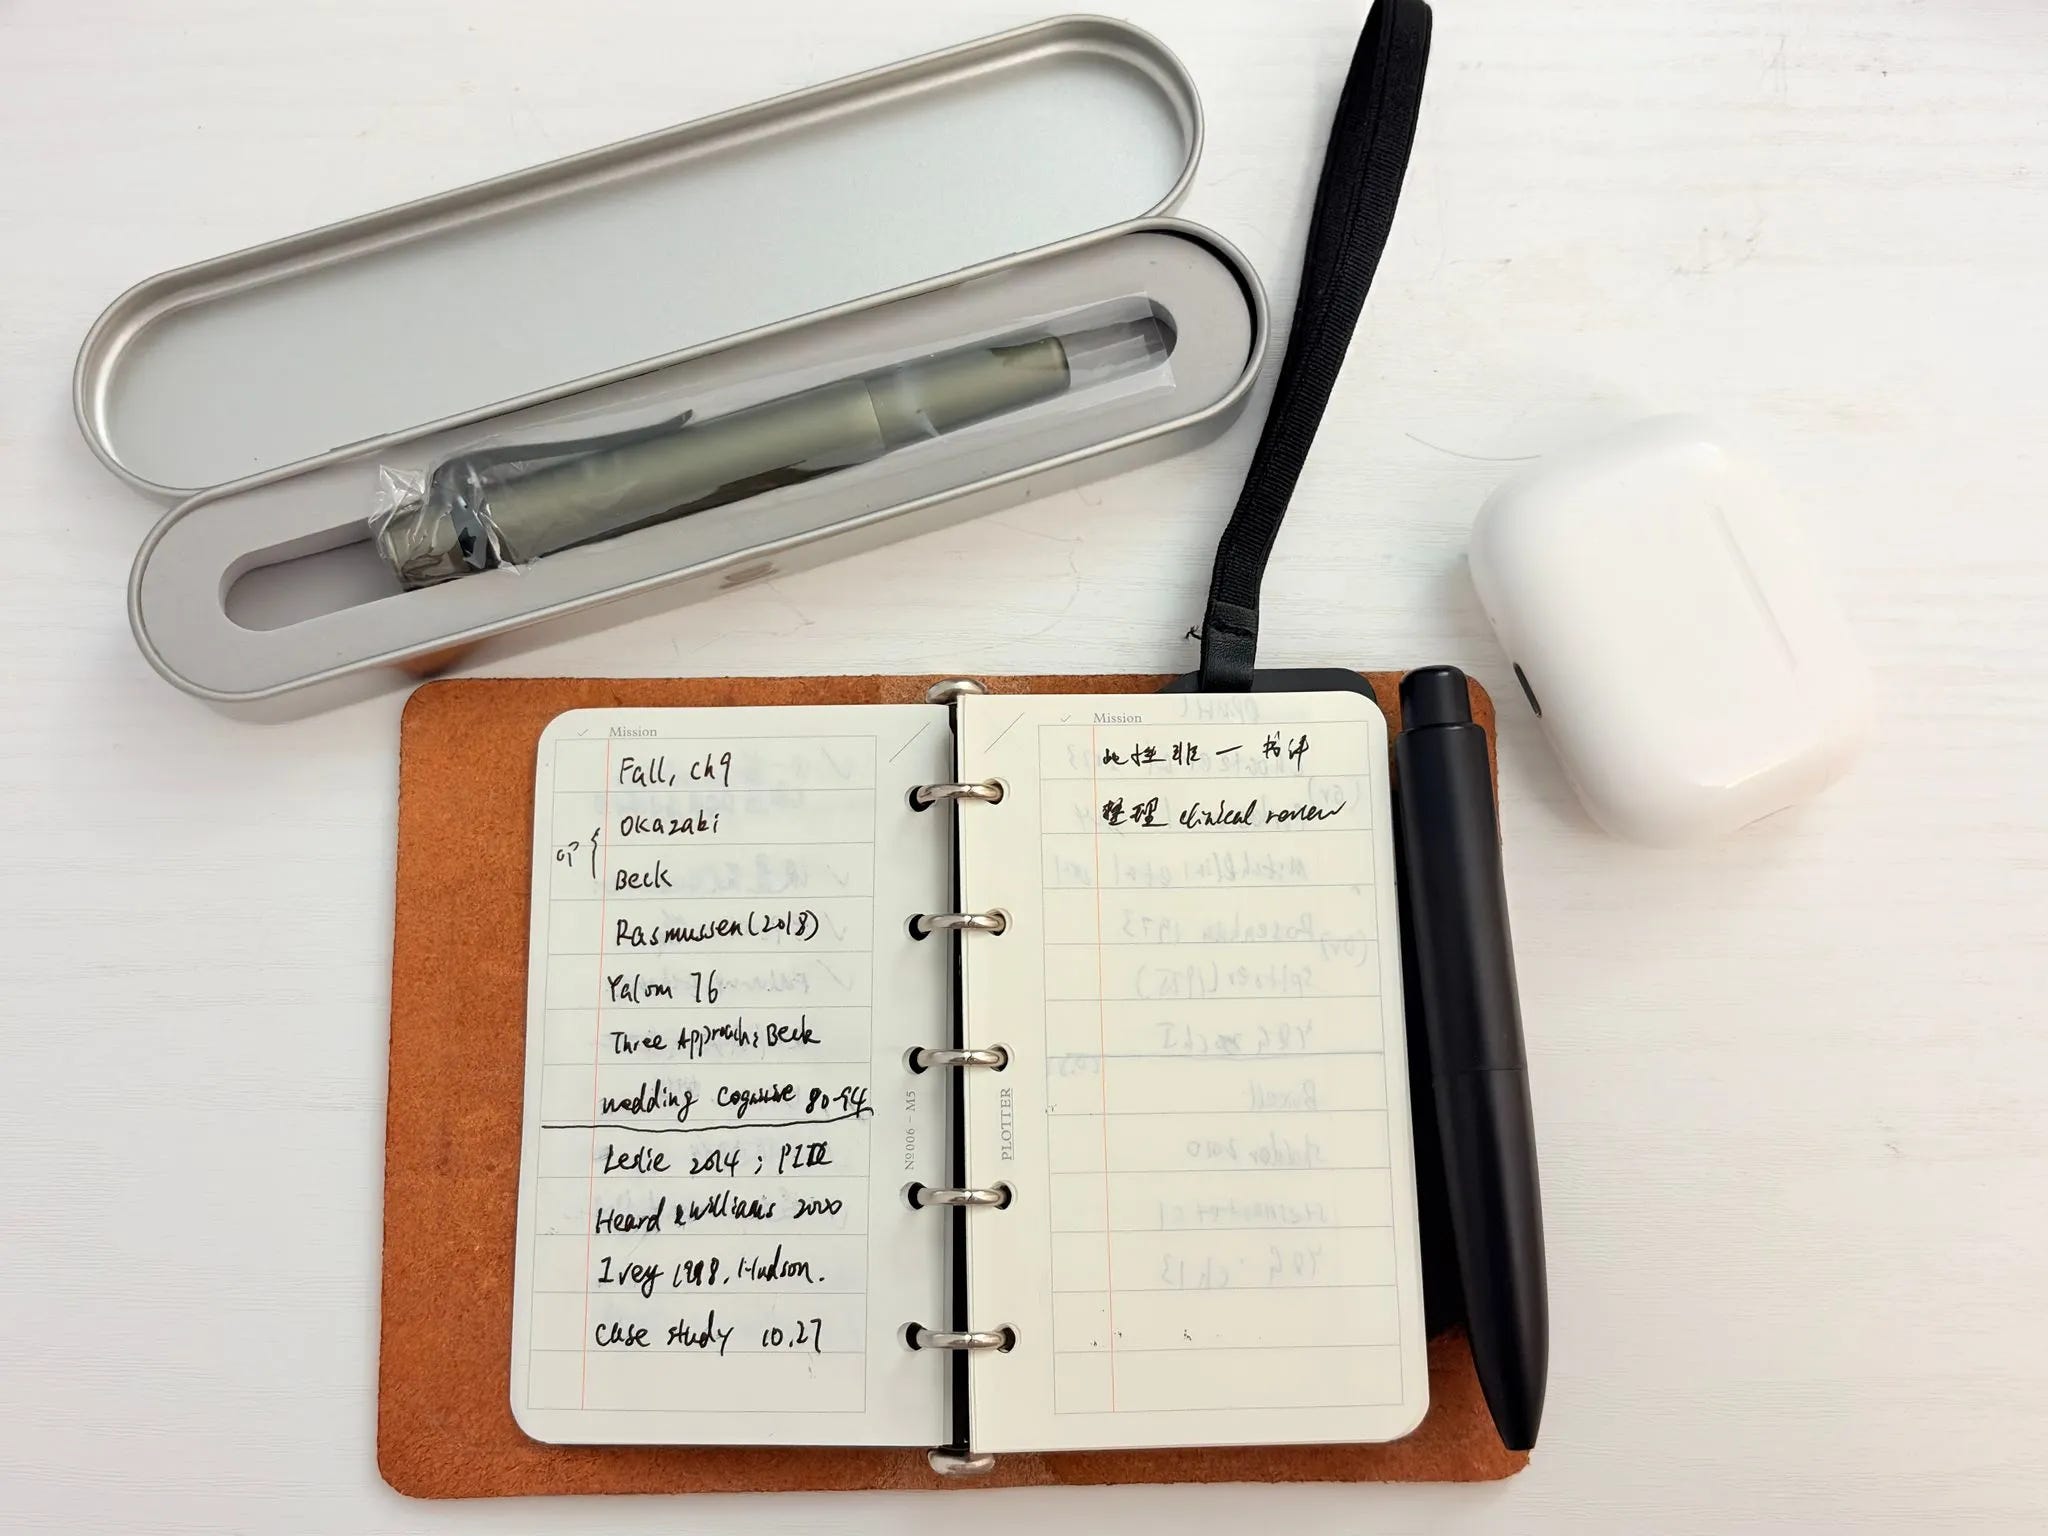 Mission
Fall, ch9
Okazaki
Beck
Rasmussen(2018)
Yalom 76
Three Approach; Beck
wedding Cognitive 80-94
Leslie 2014;
Heard & Williams 2000
Ivey 1998, Hudson.
case study 10.27
Nº006 – M5
Mission
一 书评
整理 clinical review
PLOTTER